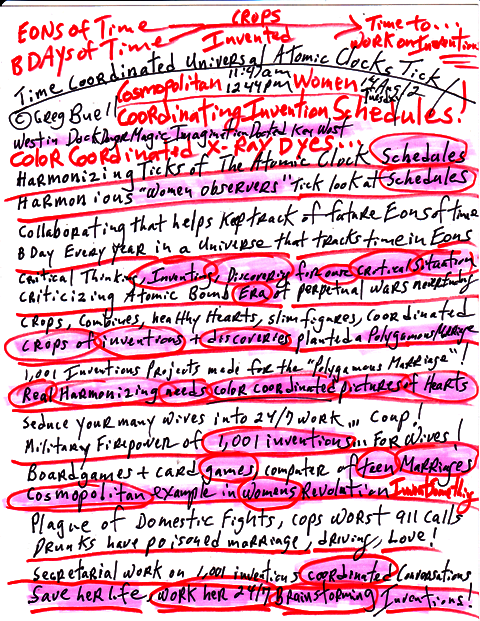 EONS of Time CROPS Time to...
BDAYS of Time Invented Work on Invention
Time Coordinated Universal Atomic Clocks Tick
© Greg Buell Cosmopolitan 11:49am 12:44pm Women Tuesday
Coordinating Invention Schedules!
West in Dock Magic Imagination Docked Key West
Color Coordinated X-Ray Dyes...
Harmonizing Ticks of The Atomic Clock Schedules
Harmonious "Women observers" Tick look at Schedules
Collaborating that helps Keep track of future Eons of time
BDay Every year in a Universe that tracks time in Eons
Critical Thinking, Inventing, Discovering for our critical situation
Criticizing Atomic Bomb ERA of perpetual wars
Crops, Combines, healthy Hearts, slim figures, coordinated
crops of inventions + discoveries planted a Polygamous Marriage
1,001 Inventions Projects made for the "Polygamous Marriage"!
Real Harmonizing needs color coordinated pictures of Hearts
Seduce your many wives into 24/7 work... Coup!
Military Firepower of 1,001 inventions... For Wives!
Board games + card games computer of teen Marriages
Cosmopolitan example in Womens Revolution Invent Something
Plague of Domestic Fights, cops worst 911 calls
Drunks have poisoned marriage, driving, Love!
Secretarial work on 1,001 inventions coordinated Conversations
Save her life, work her 24/7 Brainstorming Inventions!